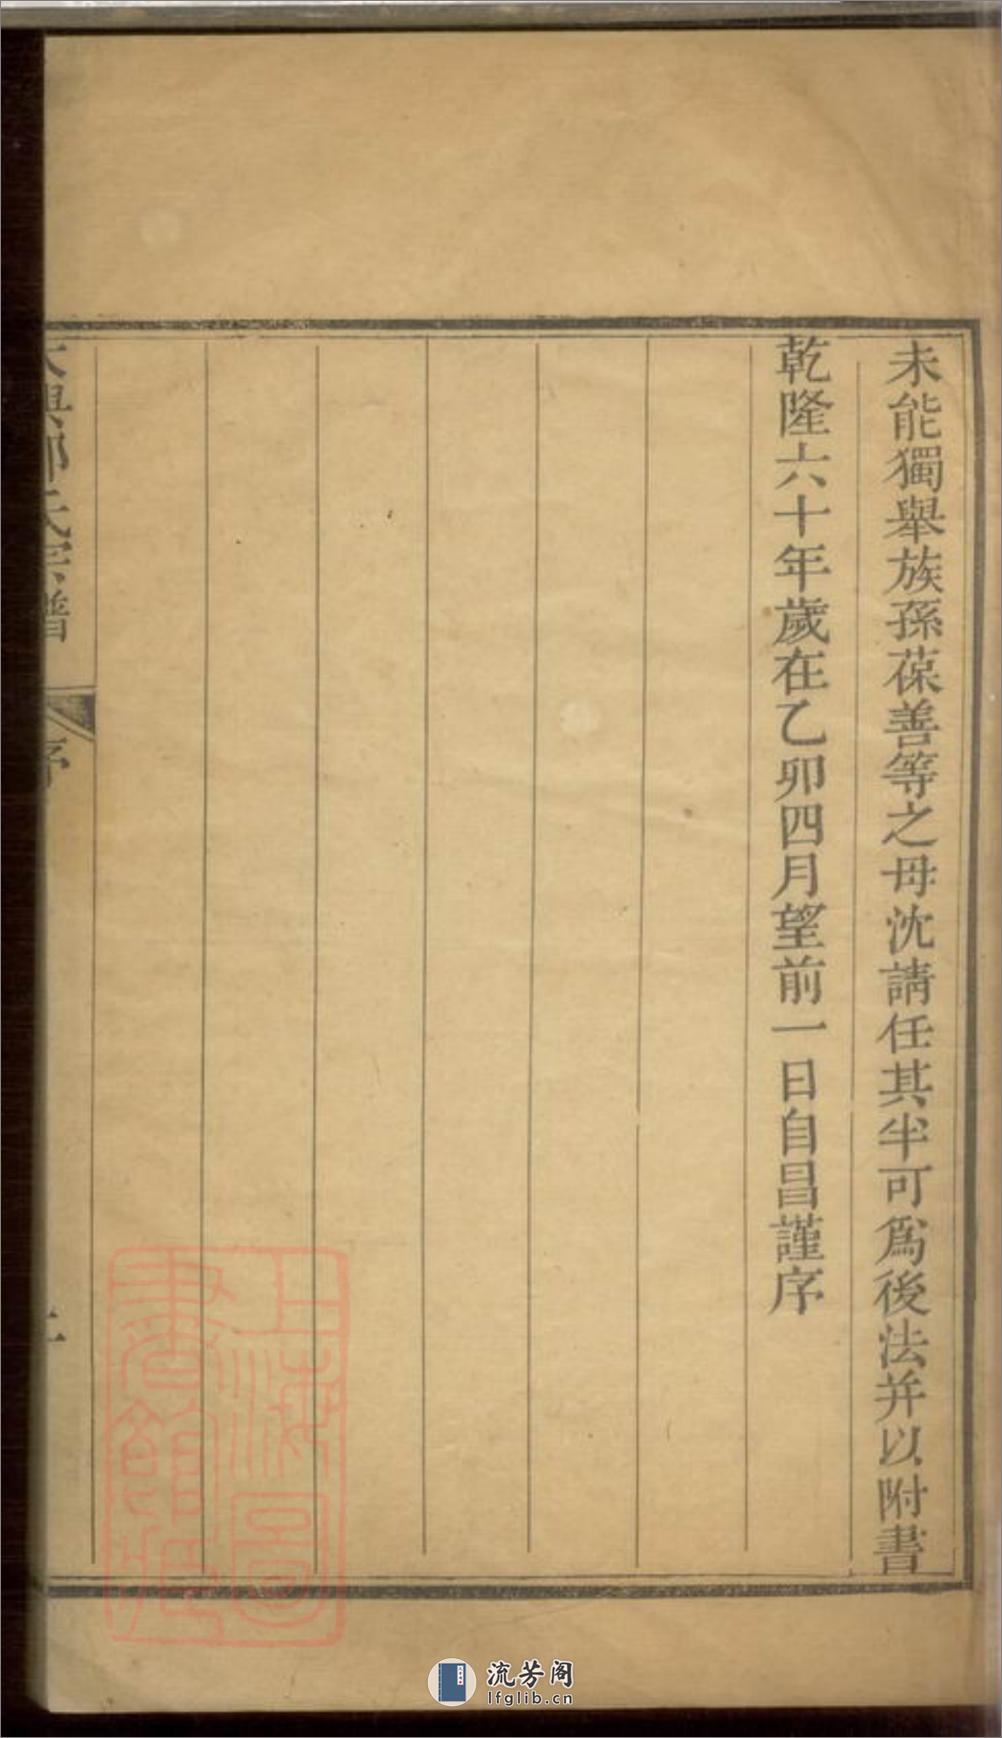 未能獨舉族孫葆善等之母沈請任其半可爲後法并以附書
乾隆六十年歲在乙卯四月望前一日自昌謹序
氏宗譜
序
上海圖
書館藏
流芳阁
lfglib.cn